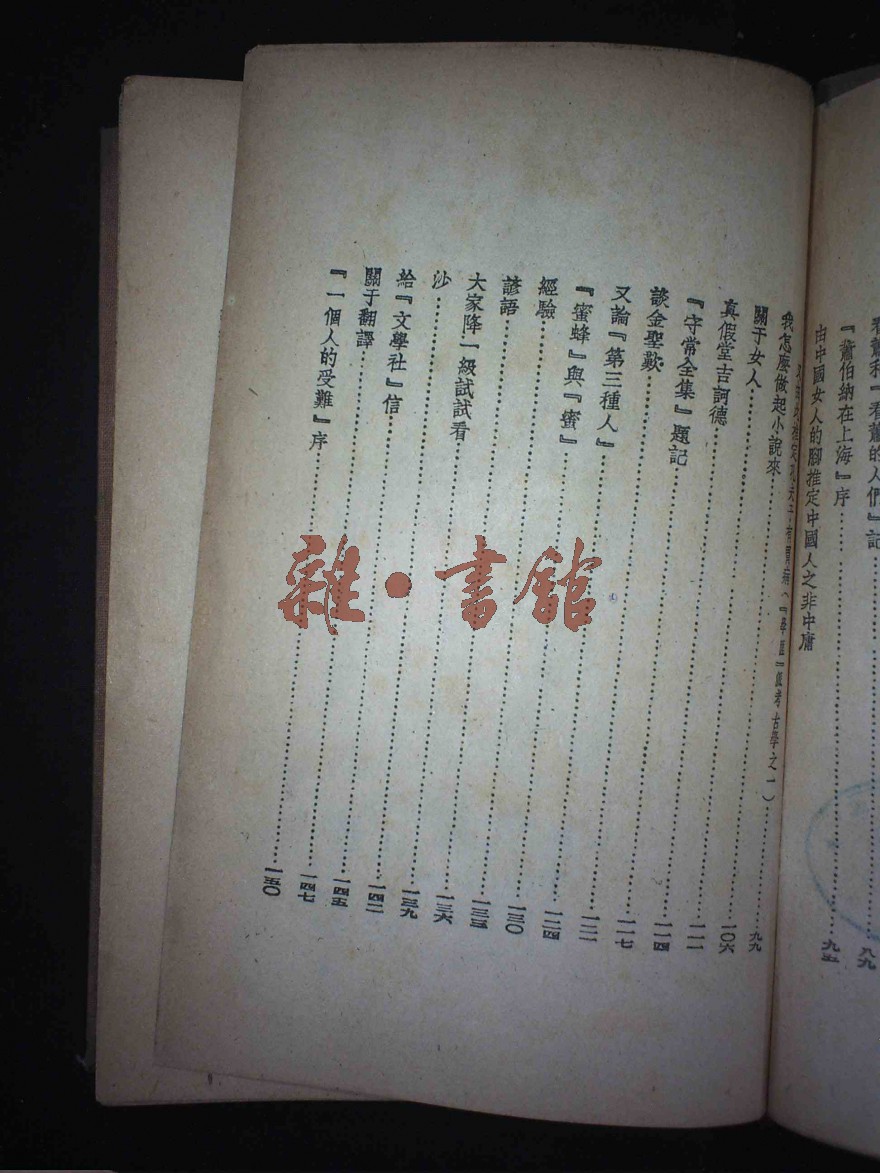 看蕭和『看蕭的人們』記………八九
『蕭伯納在上海』序………九五
由中國女人的腳推定中國人之非中庸
又由此推定孔夫子有胃病（『學匪』派考古學之一）………九九
我怎麼做起小說來………一〇六
關于女人………一一一
真假堂吉訶德………一一四
『守常全集』題記………一一七
談金聖歎………一二一
又論『第三種人』………一二四
『蜜蜂』與『蜜』………一三〇
經驗………一三三
諺語………一三六
大家降一級試試看………一三九
沙………一四二
給『文學社』信………一四五
關于翻譯………一四七
『一個人的受難』序………一五〇
雜·書館